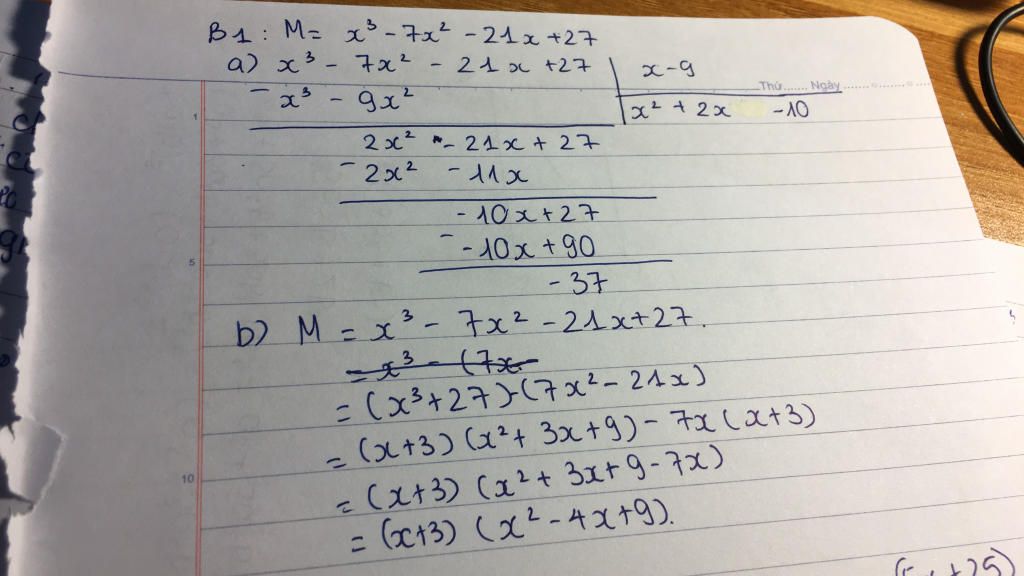 B1: M = x³ - 7x² - 21x + 27
a) x³ - 7x² - 21x + 27 | x - 9
Thứ...... Ngày
- x³ - 9x² | x² + 2x - 10
1
2x² - 21x + 27
- 2x² - 11x
- 10x + 27
- - 10x + 90
5
- 37
b) M = x³ - 7x² - 21x + 27.
= x³ - (7x
= (x³ + 27) - (7x² - 21x)
= (x+3) (x² + 3x + 9) - 7x (x+3)
10
= (x+3) (x² + 3x + 9 - 7x)
= (x+3) (x² - 4x + 9).